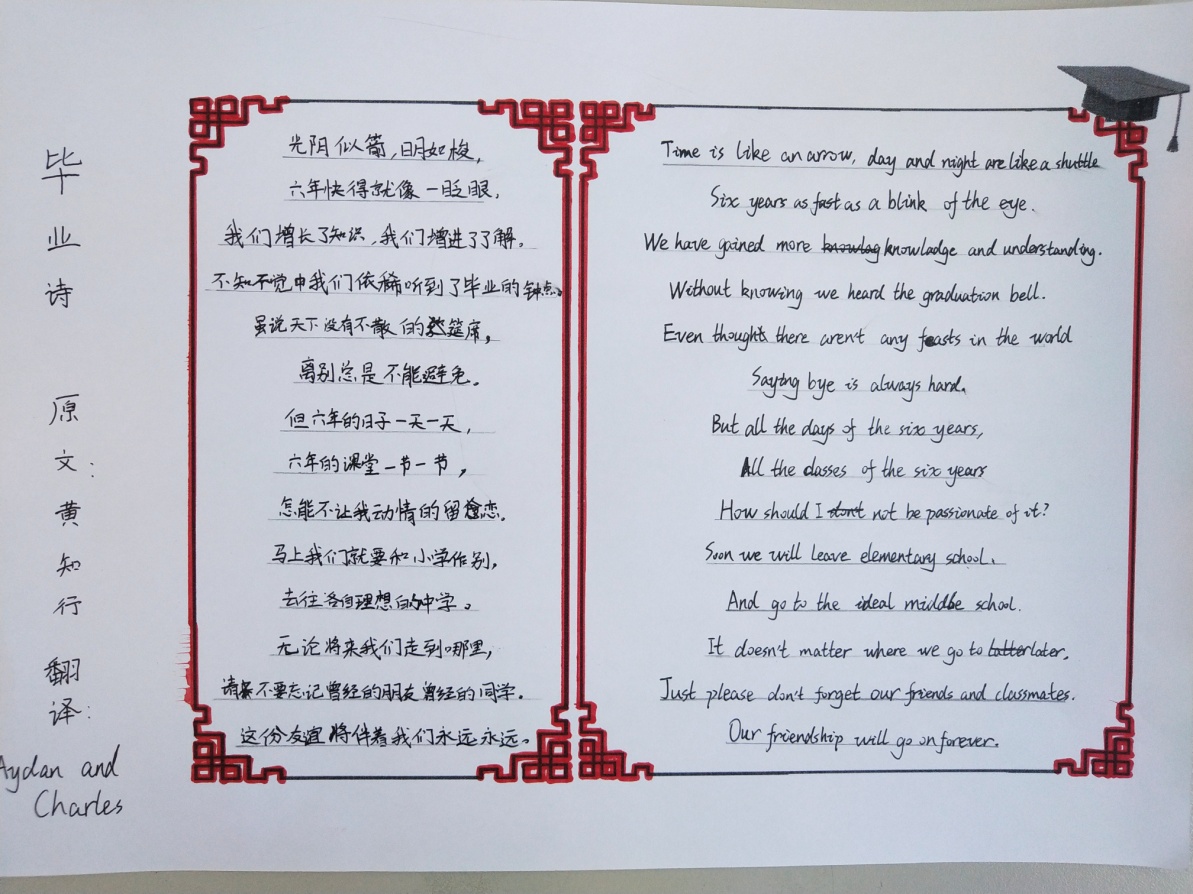 毕业诗
原文:黄知行
翻译:
Aydan and
Charles
光阴似箭,日月如梭,
六年快得就像一眨眼,
我们增长了知识,我们增进了了解。
不知不觉中我们依稀听到了毕业的钟点。
虽说天下没有不散的筵席,
离别总是不能避免。
但六年的日子一天一天,
六年的课堂一节一节,
怎能不让我动情的留恋。
马上我们就要和小学作别,
去往各自理想的中学。
无论将来我们走到哪里,
请不要忘记曾经的朋友曾经的同学。
这份友谊将伴着我们永远永远。
Time is like an arrow, day and night are like a shuttle
Six years as fast as a blink of the eye.
We have gained more knowladge and understanding.
Without knowing we heard the graduation bell.
Even though there aren't any feasts in the world
Saying bye is always hard.
But all the days of the six years,
All the classes of the six years
How should I not be passionate of it?
Soon we will leave elementary school.
And go to the ideal middle school.
It doesn't matter where we go to later,
Just please don't forget our friends and classmates.
Our friendship will go on forever.